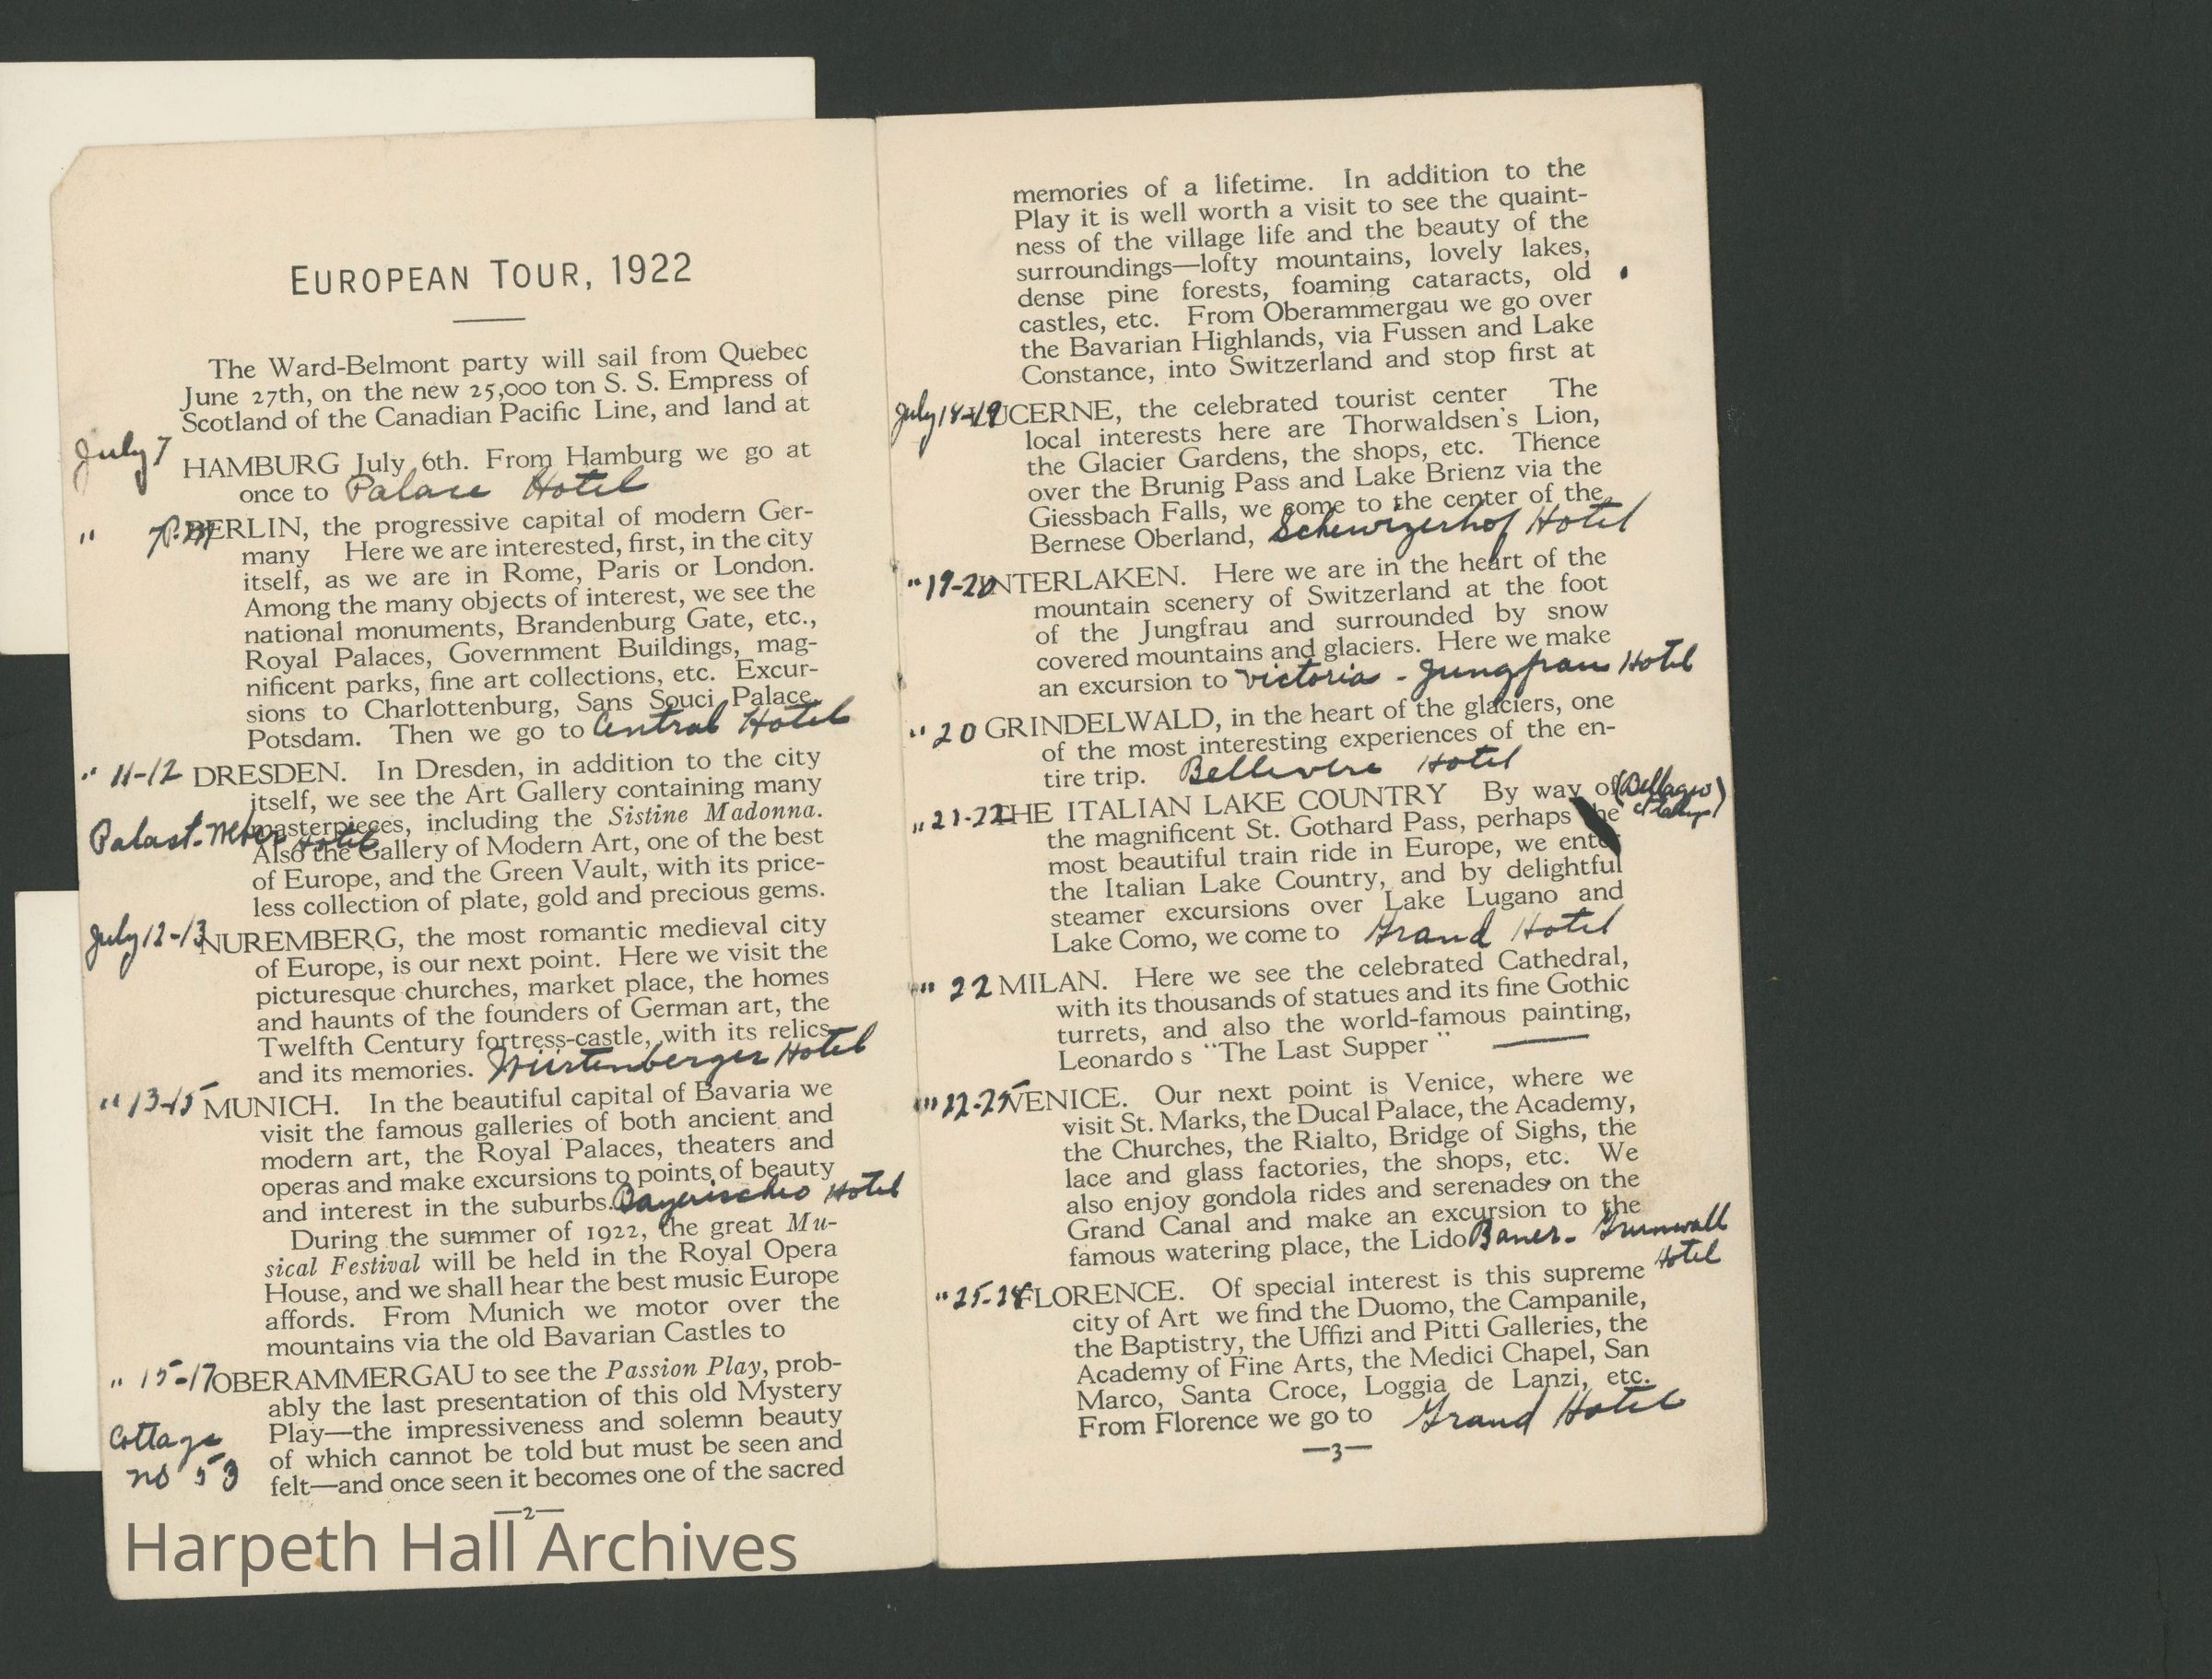 EUROPEAN TOUR, 1922
The Ward-Belmont party will sail from Quebec
June 27th, on the new 25,000 ton S. S. Empress of
Scotland of the Canadian Pacific Line, and land at
July 7
HAMBURG July 6th. From Hamburg we go at
once to Palace Hotel
" BERLIN, the progressive capital of modern Ger-
many Here we are interested, first, in the city
itself, as we are in Rome, Paris or London.
Among the many objects of interest, we see the
national monuments, Brandenburg Gate, etc.,
Royal Palaces, Government Buildings, mag-
nificent parks, fine art collections, etc. Excur-
sions to Charlottenburg, Sans Souci Palace,
Potsdam. Then we go to Central Hotel
" 11-12 DRESDEN. In Dresden, in addition to the city
itself, we see the Art Gallery containing many
masterpieces, including the Sistine Madonna.
Palast-Weber Hotel
Also the Gallery of Modern Art, one of the best
of Europe, and the Green Vault, with its price-
less collection of plate, gold and precious gems.
July 12-13 NUREMBERG, the most romantic medieval city
of Europe, is our next point. Here we visit the
picturesque churches, market place, the homes
and haunts of the founders of German art, the
Twelfth Century fortress-castle, with its relics
and its memories. Würtenberger Hotel
" 13-15 MUNICH. In the beautiful capital of Bavaria we
visit the famous galleries of both ancient and
modern art, the Royal Palaces, theaters and
operas and make excursions to points of beauty
and interest in the suburbs. Bayerischo Hotel
During the summer of 1922, the great Mu-
sical Festival will be held in the Royal Opera
House, and we shall hear the best music Europe
affords. From Munich we motor over the
mountains via the old Bavarian Castles to
" 15-17 OBERAMMERGAU to see the Passion Play, prob-
ably the last presentation of this old Mystery
Play—the impressiveness and solemn beauty
of which cannot be told but must be seen and
felt—and once seen it becomes one of the sacred
Cottage
no 53
—2—
Harpeth Hall Archives
memories of a lifetime. In addition to the
Play it is well worth a visit to see the quaint-
ness of the village life and the beauty of the
surroundings—lofty mountains, lovely lakes,
dense pine forests, foaming cataracts, old
castles, etc. From Oberammergau we go over
the Bavarian Highlands, via Fussen and Lake
Constance, into Switzerland and stop first at
July 18-19 LUCERNE, the celebrated tourist center The
local interests here are Thorwaldsen's Lion,
the Glacier Gardens, the shops, etc. Thence
over the Brunig Pass and Lake Brienz via the
Giessbach Falls, we come to the center of the
Bernese Oberland, Schewizerhof Hotel
" 19-20 INTERLAKEN. Here we are in the heart of the
mountain scenery of Switzerland at the foot
of the Jungfrau and surrounded by snow
covered mountains and glaciers. Here we make
an excursion to Victoria - Jungfrau Hotel
" 20 GRINDELWALD, in the heart of the glaciers, one
of the most interesting experiences of the en-
tire trip. Bellevere Hotel
" 21-22 THE ITALIAN LAKE COUNTRY By way of (Bellagio
the magnificent St. Gothard Pass, perhaps the
most beautiful train ride in Europe, we enter
the Italian Lake Country, and by delightful
steamer excursions over Lake Lugano and
Lake Como, we come to Grand Hotel
" 22 MILAN. Here we see the celebrated Cathedral,
with its thousands of statues and its fine Gothic
turrets, and also the world-famous painting,
Leonardo s "The Last Supper"
" 22-25 VENICE. Our next point is Venice, where we
visit St. Marks, the Ducal Palace, the Academy,
the Churches, the Rialto, Bridge of Sighs, the
lace and glass factories, the shops, etc. We
also enjoy gondola rides and serenades on the
Grand Canal and make an excursion to the
famous watering place, the Lido Bauer- Grunwall
Hotel
" 25-28 FLORENCE. Of special interest is this supreme
city of Art we find the Duomo, the Campanile,
the Baptistry, the Uffizi and Pitti Galleries, the
Academy of Fine Arts, the Medici Chapel, San
Marco, Santa Croce, Loggia de Lanzi, etc.
From Florence we go to Grand Hotel
—3—